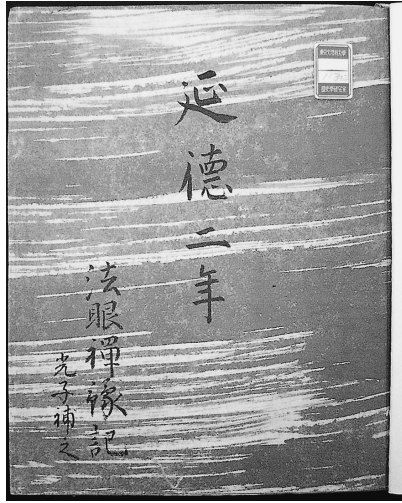 延德二年
法眼禪豫記
光子補之